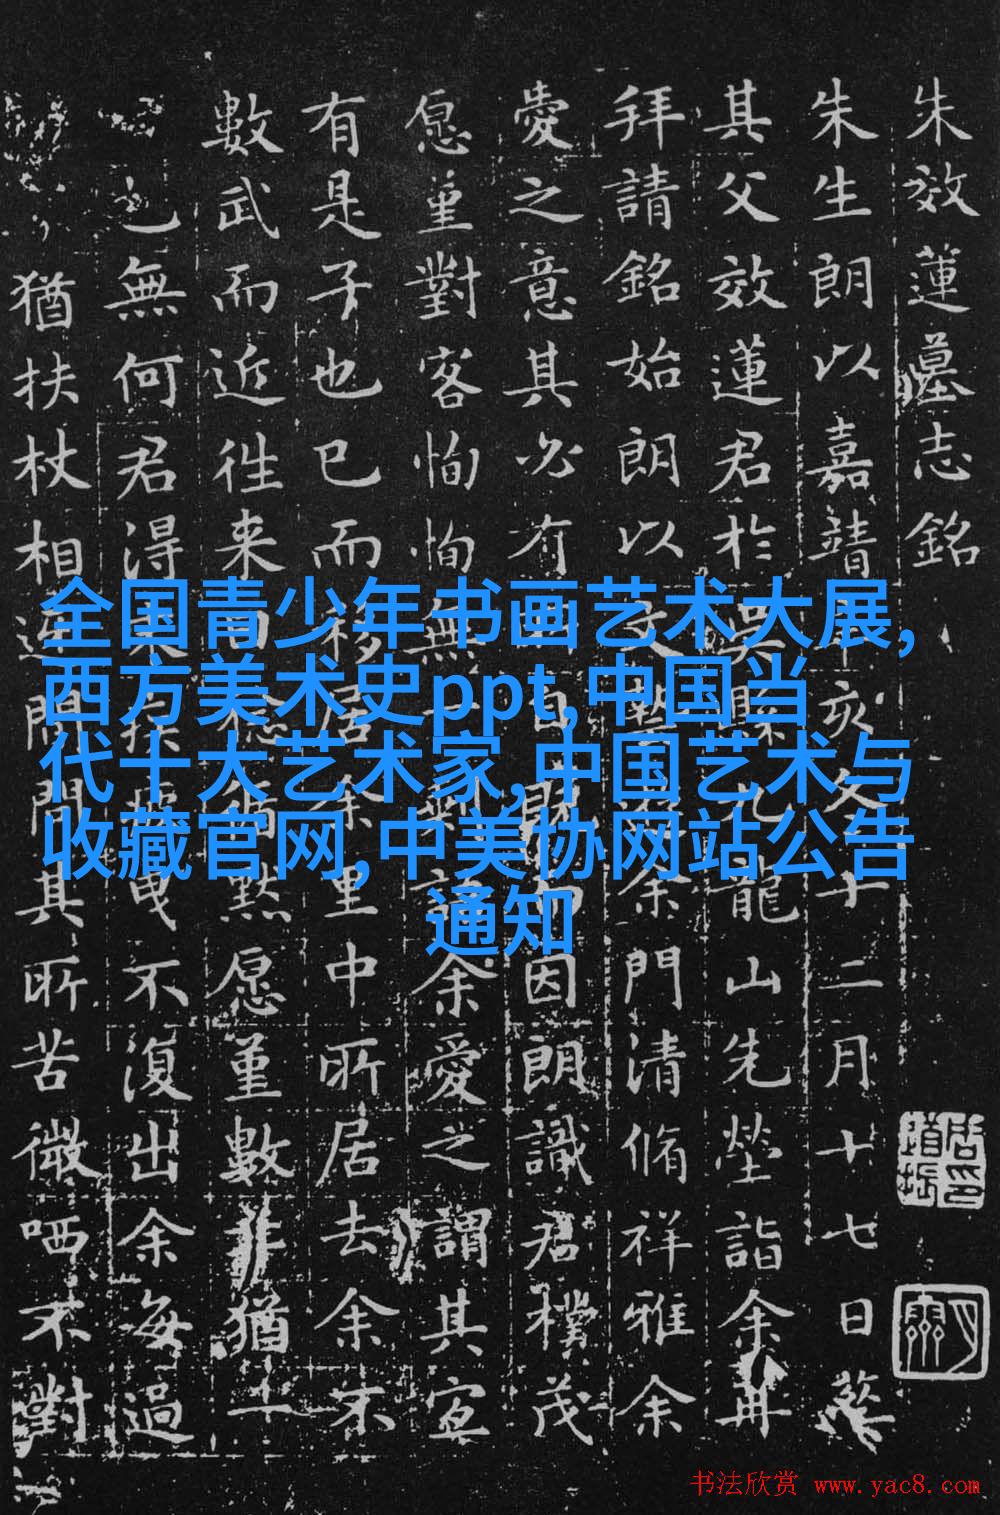 朱效蓮墓志銘
朱生朗以嘉靖辛亥冬十二月十七日葬
其父效蓮君於吳縣九龍山先塋詣余再
拜請銘始朗以文余門清脩祥雅余
愛之意其必有自因朗識君樸茂
愿重對客恂恂無一剩語余愛之謂其宜
有是子也已而移居余里中所居去余不
數武而近往来愿重數猶一
無何君得末操曳不復出余每過
猶扶杖相迎問其所苦微哂不對
全国青少年书画艺术大展,
西方美术史ppt,中国当
代十大艺术家,中国艺术与
收藏官网,中美协网站公告
通知
书法欣赏 www.yac8.com